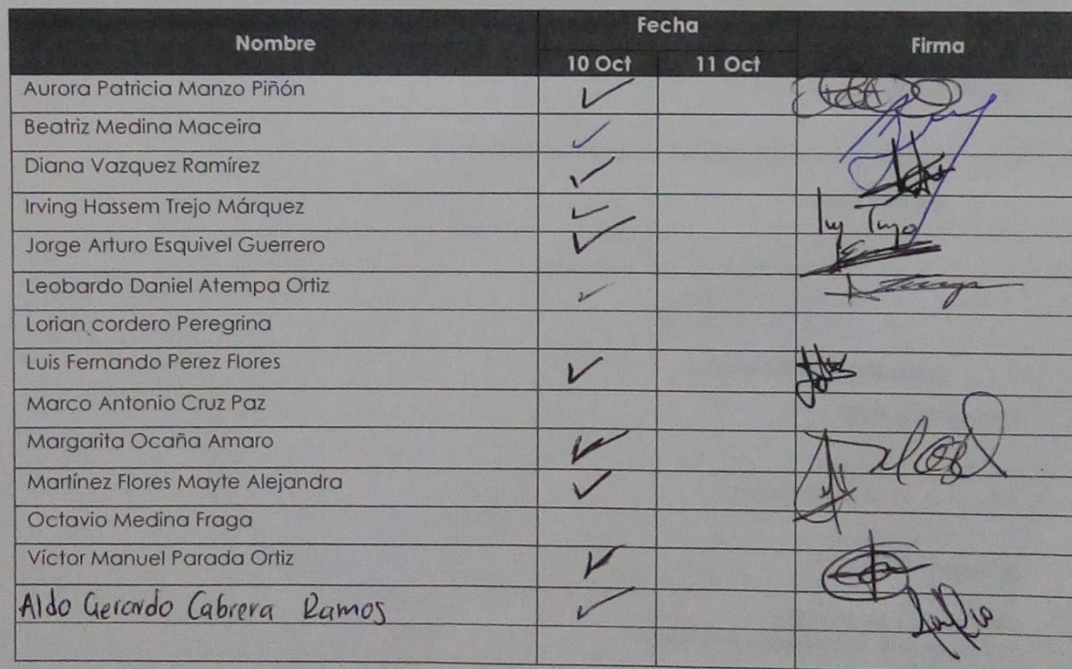 Nombre Fecha Firma
10 Oct 11 Oct
Aurora Patricia Manzo Piñón ✓
Beatriz Medina Maceira ✓
Diana Vazquez Ramírez ✓
Irving Hassem Trejo Márquez ✓
Jorge Arturo Esquivel Guerrero ✓
Leobardo Daniel Atempa Ortiz ✓
Lorian cordero Peregrina
Luis Fernando Perez Flores ✓
Marco Antonio Cruz Paz
Margarita Ocaña Amaro ✓
Martínez Flores Mayte Alejandra ✓
Octavio Medina Fraga
Víctor Manuel Parada Ortiz ✓
Aldo Gerardo Cabrera Ramos ✓